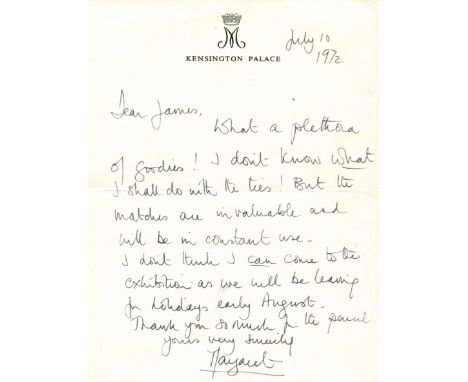 M
KENSINGTON PALACE
July 10
1972
Dear James,
What a plethora
of goodies! I don't know what
I shall do with the ties! But the
matches are invaluable and
will be in constant use.
I don't think I can come to the
exhibition as we will be leaving
for holidays early August.
Thank you so much for the parcel
yours very sincerely
Margaret